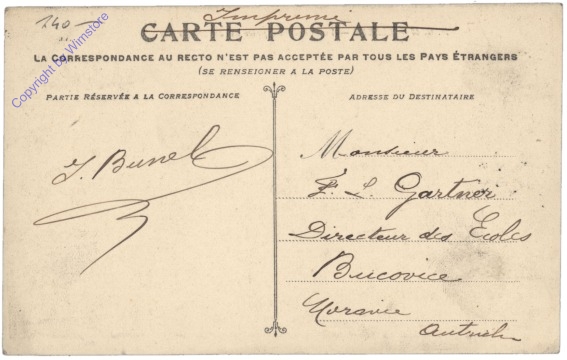 240.-
Copyright by Wimstore
Imprimé
CARTE POSTALE
LA CORRESPONDANCE AU RECTO N'EST PAS ACCEPTÉE PAR TOUS LES PAYS ÉTRANGERS
(SE RENSEIGNER A LA POSTE)
PARTIE RÉSERVÉE A LA CORRESPONDANCE
J. Bunel
ADRESSE DU DESTINATAIRE
Monsieur
F. L. Gartner
Directeur des Ecoles
Bucovice
Moravie
Autriche